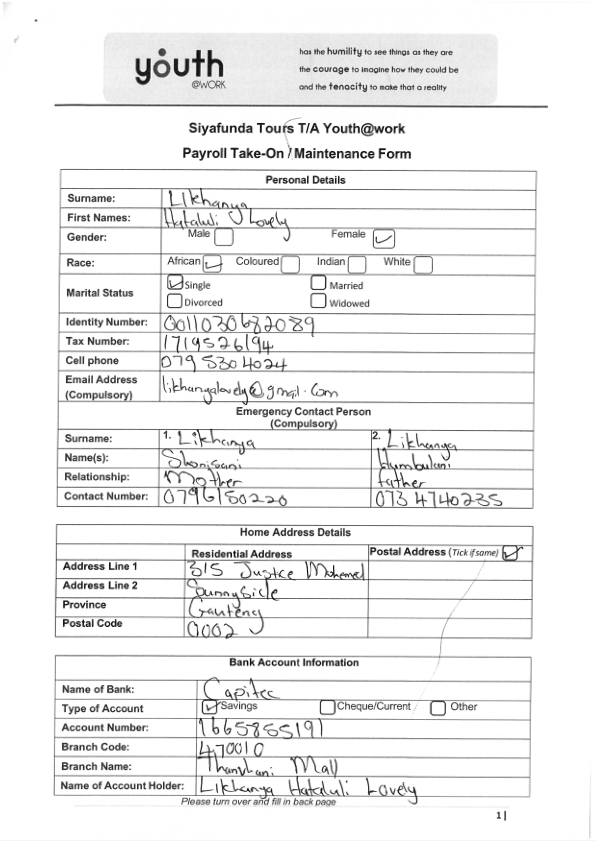 youth
@WORK
has the humility to see things as they are
the courage to imagine how they could be
and the tenacity to make that a reality
Siyafunda Tours T/A Youth@work
Payroll Take-On / Maintenance Form
Personal Details
Surname: Likhanya
First Names: Hataluli Lovely
Gender: Male Female
Race: African Coloured Indian White
Marital Status Single Married
Divorced Widowed
Identity Number: 0011030682089
Tax Number: 1719526194
Cell phone 079 530 4024
Email Address (Compulsory) likhanyalovely@gmail.com
Emergency Contact Person
(Compulsory)
Surname: 1. Likhanya 2. Likhanya
Name(s): Shonisani Humbulani
Relationship: Mother father
Contact Number: 0796150220 073 4740235
Home Address Details
Residential Address Postal Address (Tick if same)
Address Line 1 315 Justice Mohamed
Address Line 2 Sunnyside
Province Gauteng
Postal Code 0002
Bank Account Information
Name of Bank: Capitec
Type of Account Savings Cheque/Current Other
Account Number: 1665855191
Branch Code: 470010
Branch Name: Mall
Name of Account Holder: Likhanya Hataluli Lovely
Please turn over and fill in back page
1|